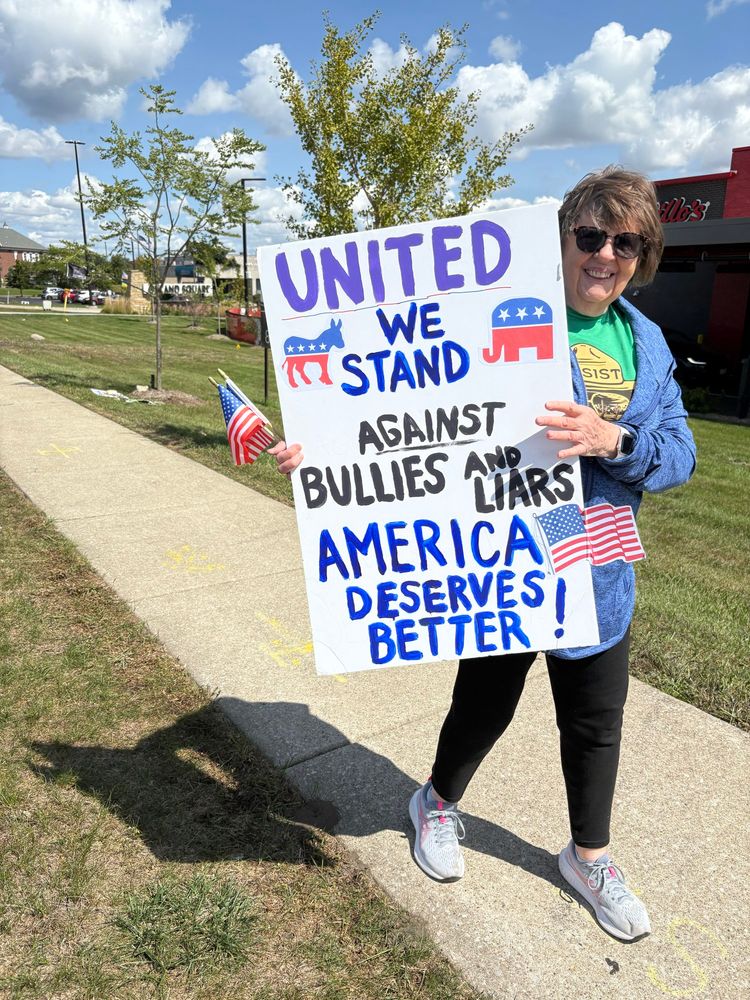 UNITED
WE
STAND
AGAINST
BULLIES AND
LIARS
AMERICA
DESERVES
BETTER!
SIST